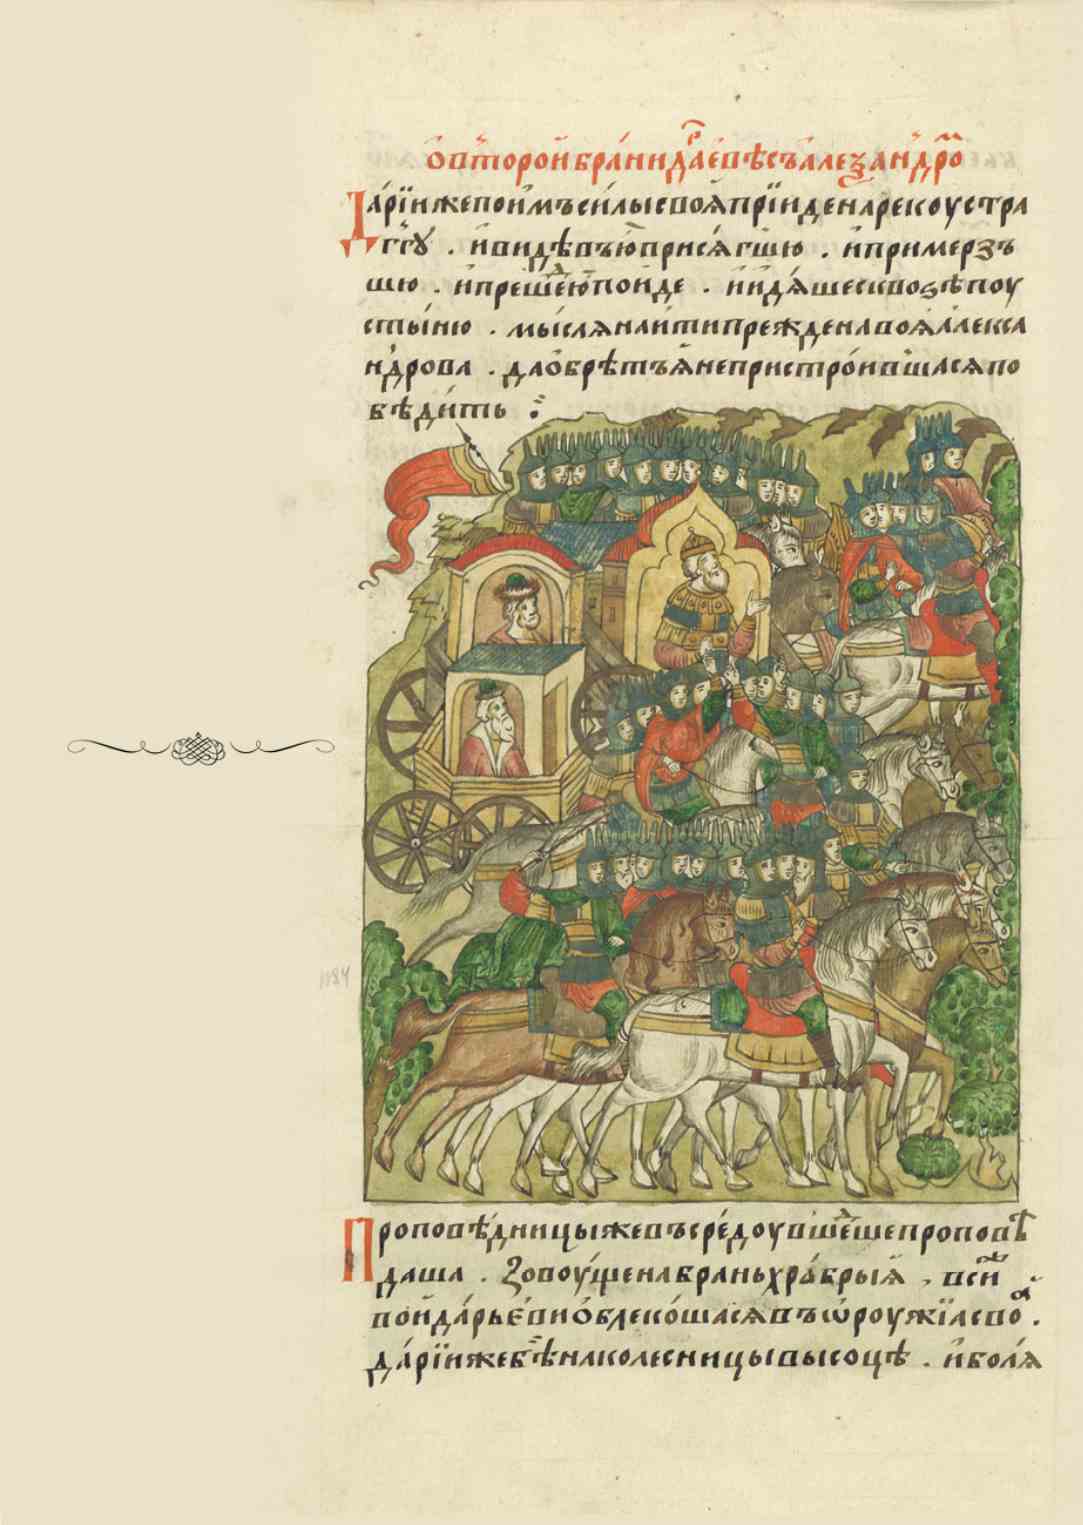 ѻ в҆торои҆ бра́ни да́рїеве съ алеѯа́ндром
Да́рїи же пои҆мъ си́лы своѧ̀ прїи́де на рекоу стра
ггꙋ́ . и҆ ви́дѣвъ ю҆ прися́гшꙋю . и҆ примерзъ
шю . и҆ преше́д ю҆ пои́де . и и҆дя́ше сквоѕѣ поу
сты́ню . мы́слѧ наи́ти пре́жде на воѧ̀ алекса
н҆дрова . да ѻ҆брѣтъ ѧ҆̀ не пристро́ившасѧ по
бѣди́ть :
Проповѣ́дницы же въ сре́доу в҆ше́дше проповѣ
даша . Зовоу́ще на брань хра́брыѧ , вси́
вои́ да́рьеви ѻ҆блеко́шасѧ въ ѡ҆роу́жїа своа̀ .
Да́рїи же бѣ̀ на колесницы высоцѣ . и҆ бола́ѧ
1184